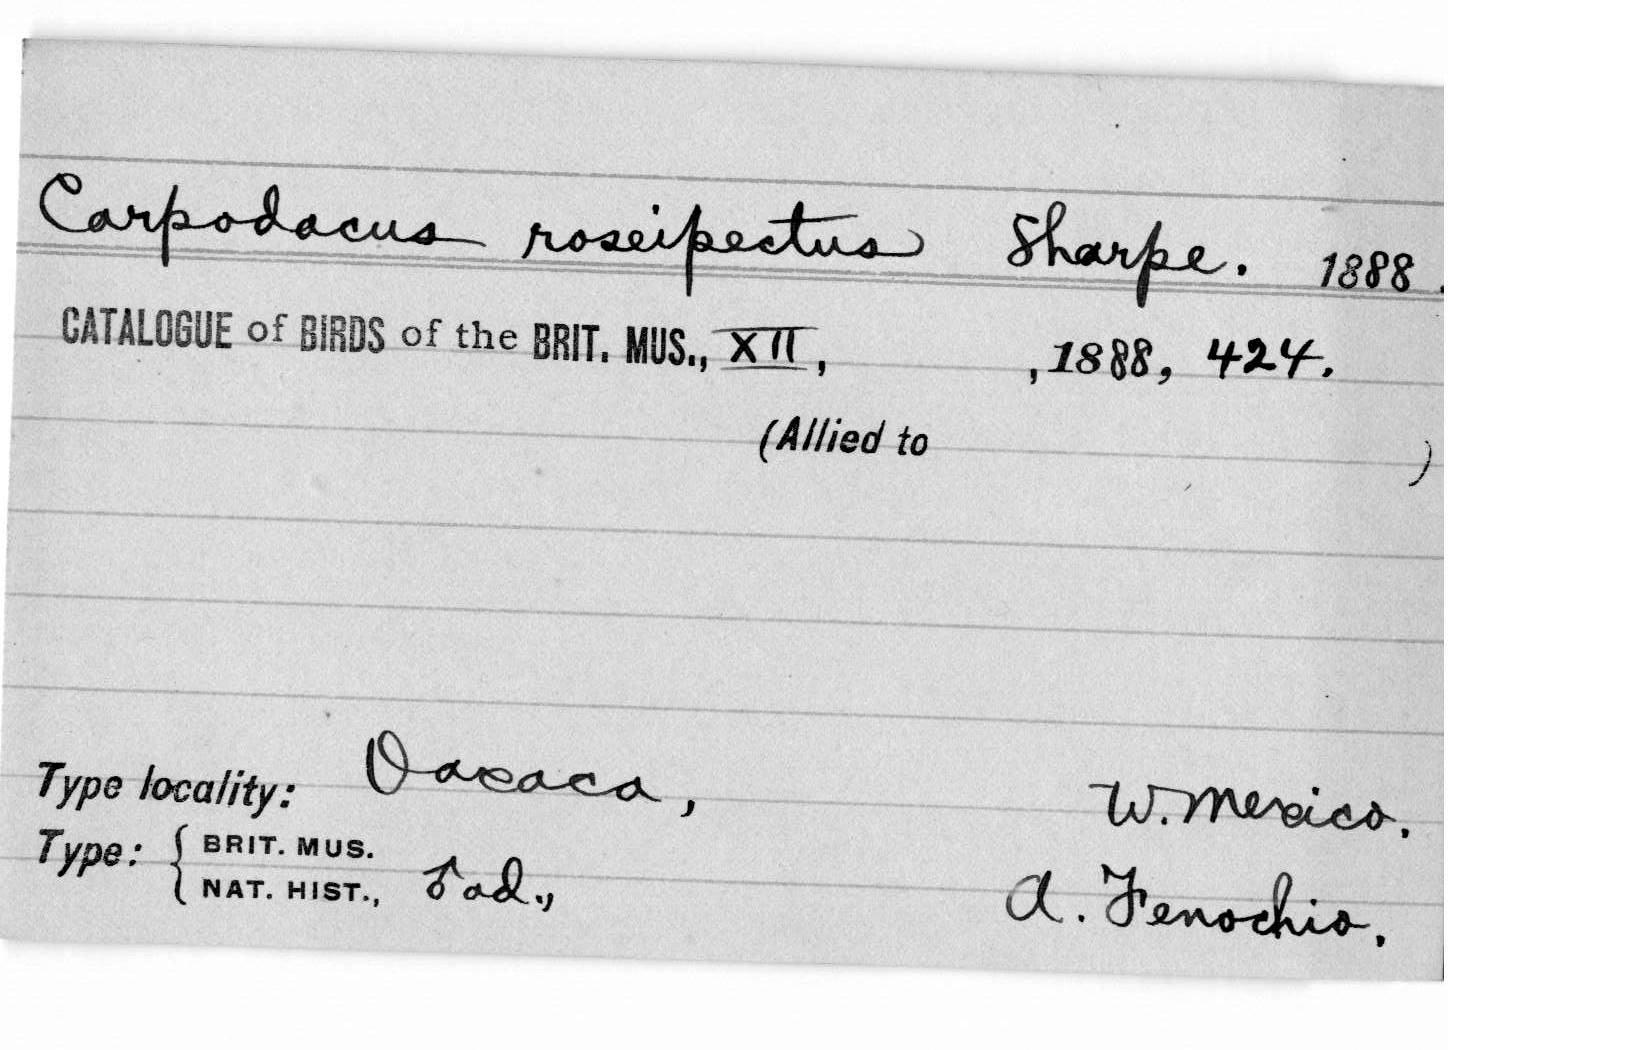 Carpodacus roseipectus Sharpe. 1888.
CATALOGUE of BIRDS of the BRIT. MUS., XII, , 1888, 424.
(Allied to )
Type locality: Oaxaca, W. Mexico.
Type: { BRIT. MUS.
NAT. HIST., ♂ ad., A. Fenochio.